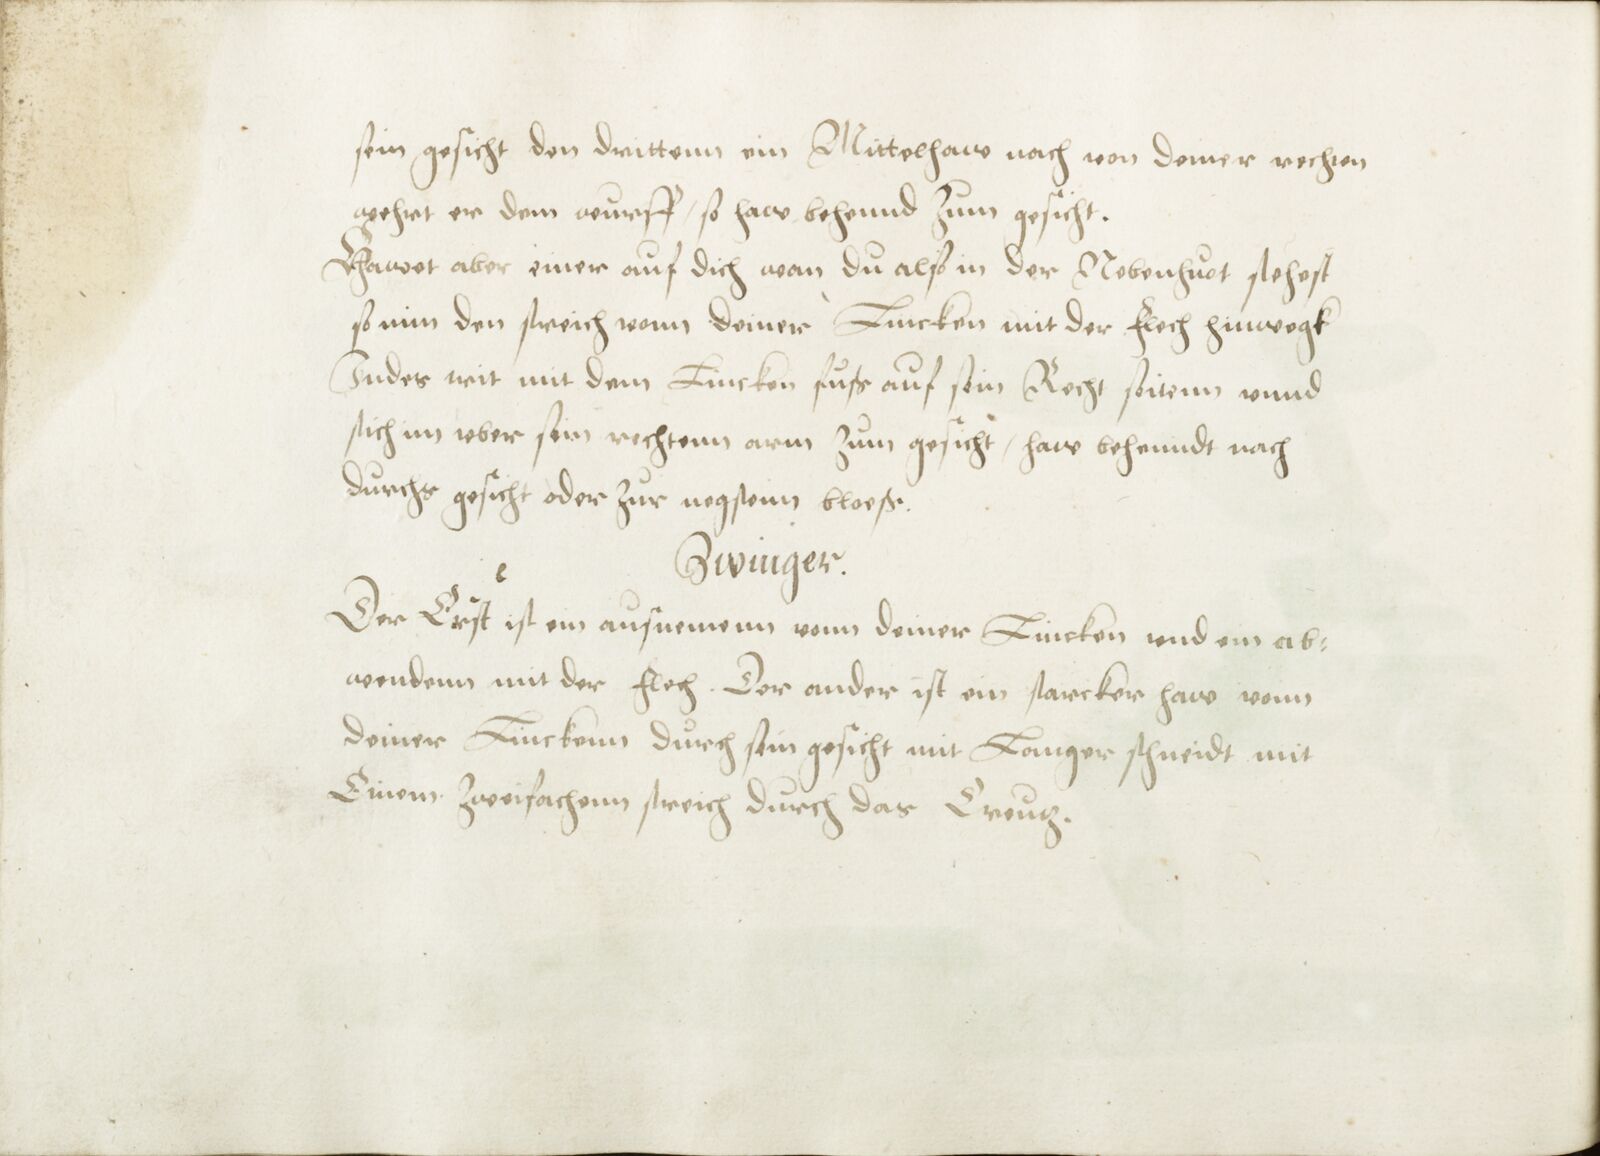 sein gesicht den drittenn ein Mittelhaw nach von deiner rechten
wehrt er dem wurff / so haw behennd zum gesicht.
Hawet aber einer auf dich wan du also in der Nebenhuot stehest
so nim den streich vonn deiner Lincken mit der flech hinwegk
Indes trit mit dem Lincken fuß auf sein Recht seitenn vnnd
stich im vber sein rechtenn arm zum gesicht / haw behenndt nach
durchs gesicht oder zur negstenn bloeß.
Zwinger.
Der Erst ist ein ausnemenn vonn deiner Lincken vnd ein ab:
wendenn mit der flech. Der ander ist ein starcker haw vonn
deiner Linckenn durch sein gesicht mit Langer schneidt mit
Einem zweifachenn streich durch das Creutz.